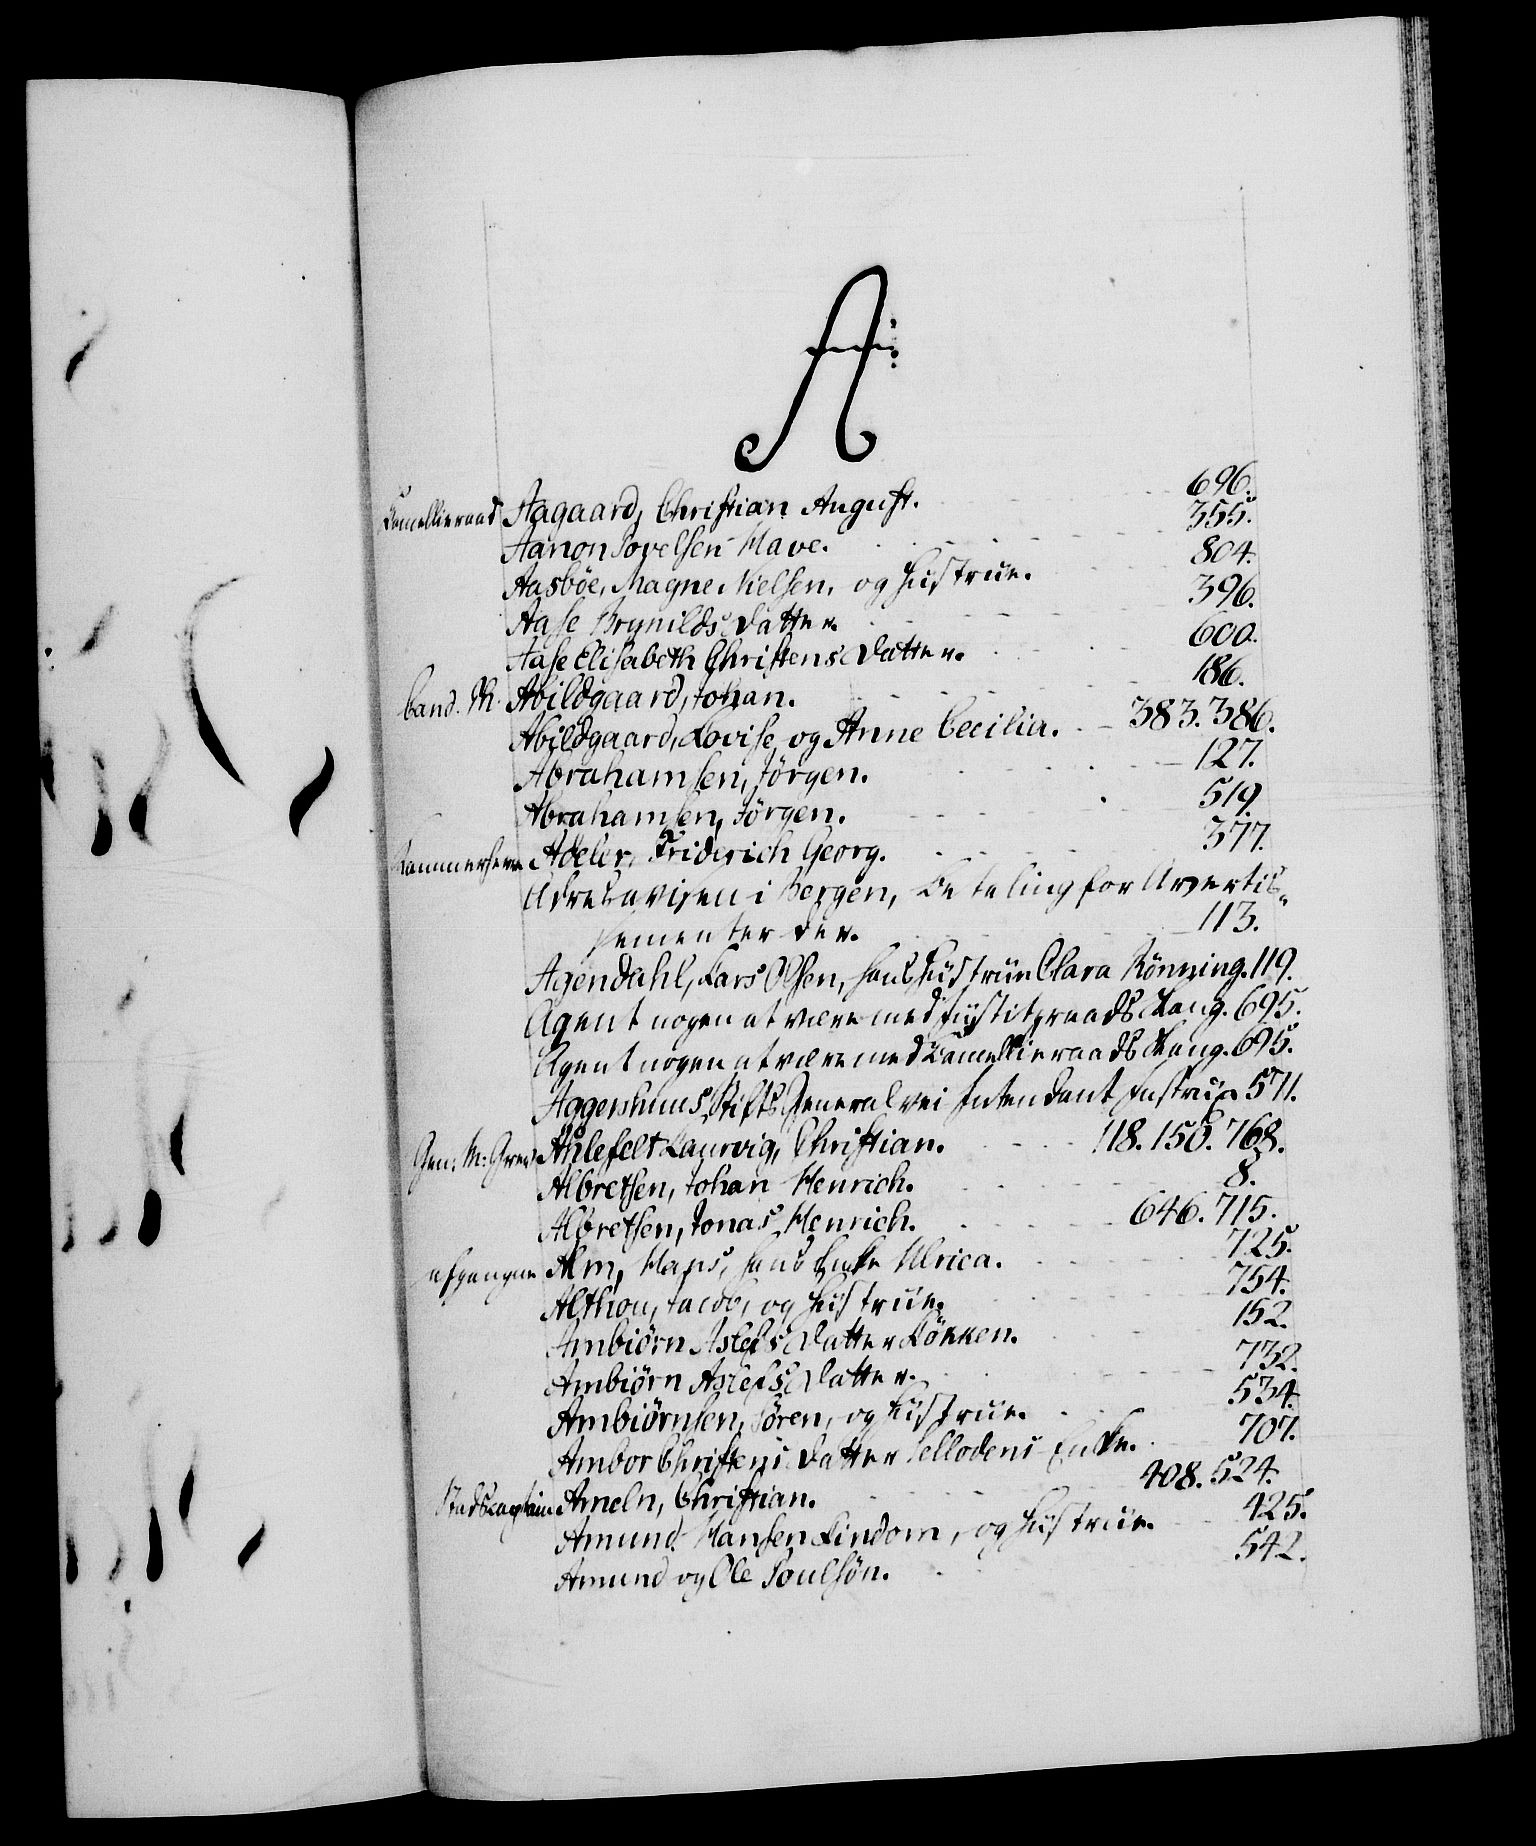 A:
Cancellieraad Aagaard, Christian August. 696.
Aanon Povelsen Have. 355.
Aasböe, Magne Nielsen, og Hustrue. 804.
Aase Brynilds Datter. 396.
Aase Elisabeth Christens Datter. 600.
Cand. Th. Abildgaard, Johan. 186.
Abildgaard, Lovise og Anne Cecilia. 383. 386.
Abrahamsen, Jörgen. 127.
Abrahamsen, Jörgen. 519.
Kammerherre Adeler, Friderich Georg. 377.
Adresavisen i Bergen, Betaling for Avertis„
sementer der. 113.
Agendahl, Lars Olsen, hans Hustrue Clara Rönning. 119.
Agent nogen at være med Justitsraads Rang. 695.
Agent nogen at være med Cancellieraads Rang. 695.
Aggershuus Stifts General vei Intendant Instrux 571.
Gen: M: Greve Ahlefelt Laurvig, Christian. 118. 150. 768.
Albretsen, Johan Henrich. 8.
Albretsen, Jonas Henrich. 646. 715.
afgangne Alm, Hans, hans Enke Ulrica. 725.
Althou, Jacob, og Hustrue. 754.
Ambiörn Aslefs Datter Lökken. 152.
Ambiörn Aslefs Datter. 732.
Ambiörnsen, Sören, og Hustrue. 534.
Ambor Christens Datter Sellodens Enke. 707.
Stadscaptain Ameln, Christian. 408. 524.
Amund Hansen Lindom, og Hustrue. 425.
Amund og Ole Poulsön. 542.